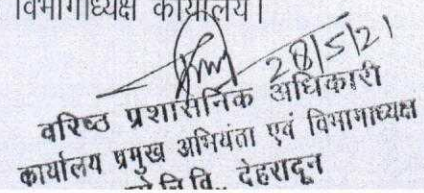 विभागाध्यक्ष कार्यालय।
28/5/21
वरिष्ठ प्रशासनिक अधिकारी
कार्यालय प्रमुख अभियंता एवं विभागाध्यक्ष
लो.नि.वि., देहरादून